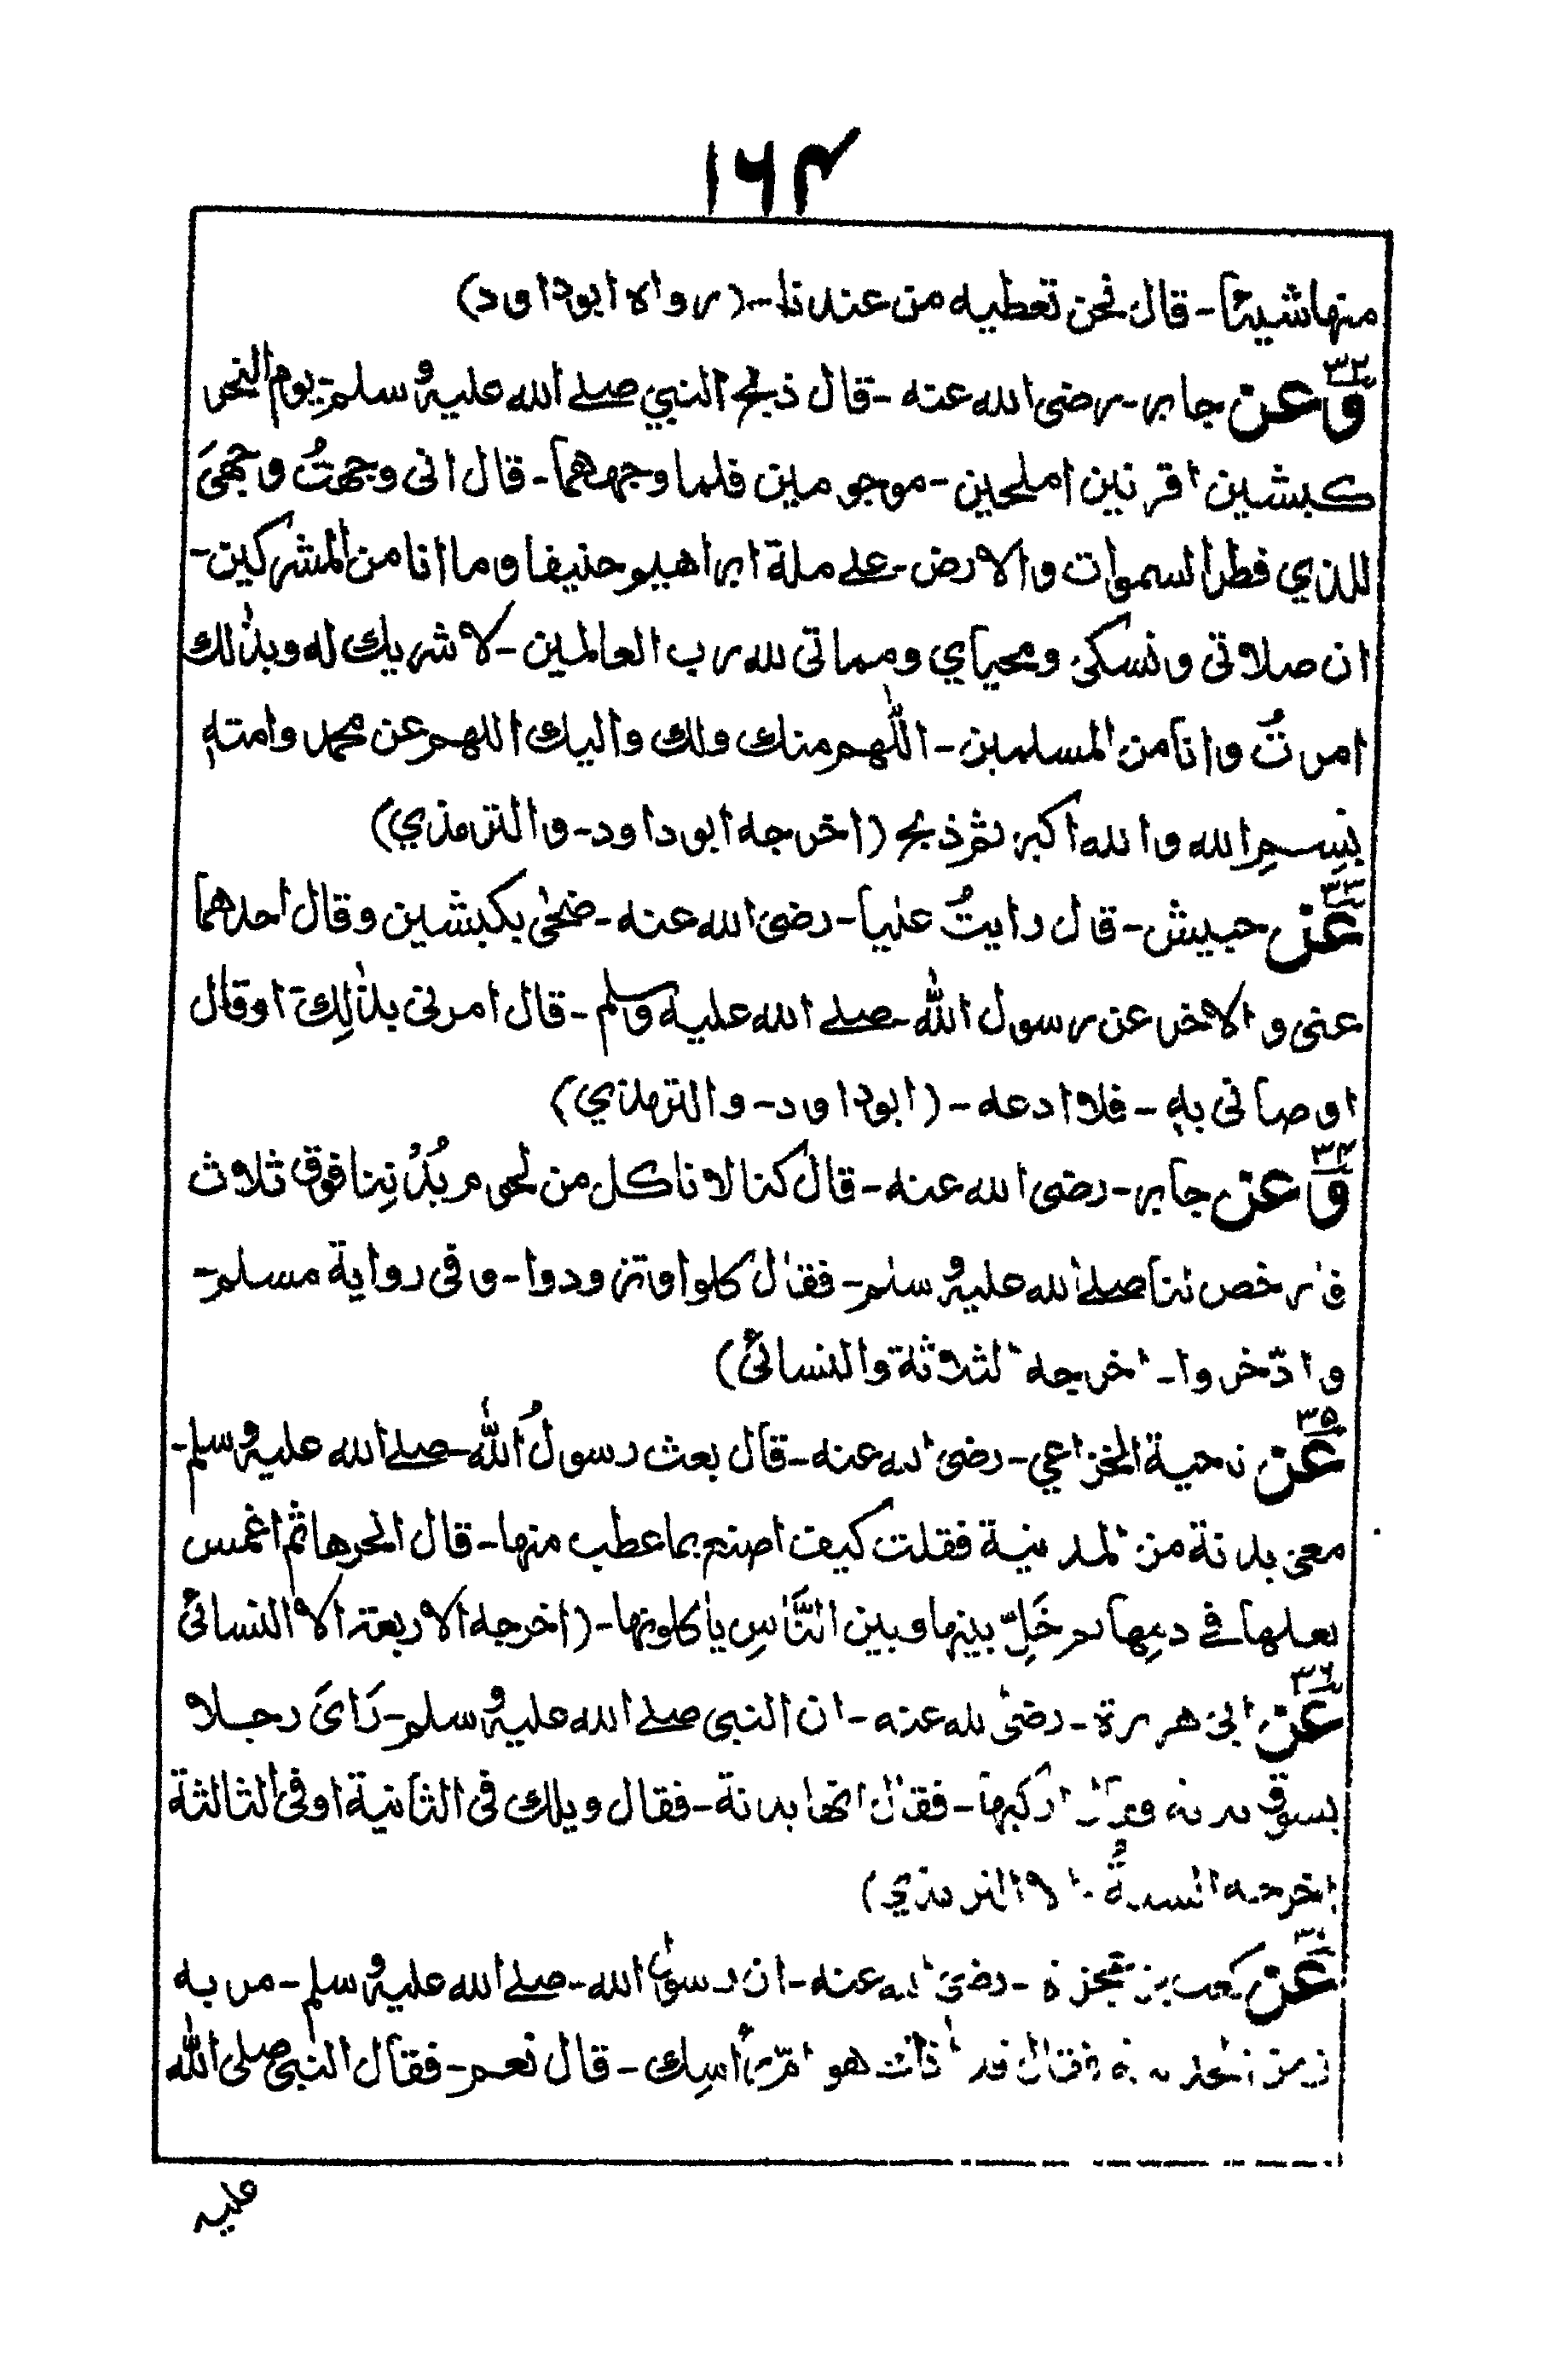 ۱۶۴
منها شيئا - قال نحن تعطيه من عندنا - (رواه ابوداود)
۳۲ وعن جابر - رضى الله عنه - قال ذبح النبي صلے الله عليه وسلم - يوم النحر
كبشين اقرنين املحين - موجومين فلما وجههما - قال انى وجهتُ وجهىَ
للذي فطر السموات والارض - علے ملة ابراهيم حنيفا وما انا من المشركين -
ان صلاتى ونسكى ومحياي ومماتى لله رب العالمين - لا شريك له وبذٰلك
امرتُ وانا من المسلمين - اللّٰهم منك ولك واليك اللهم عن محمد وامته
بِسمِ الله والله اكبر ثم ذبح (اخرجه ابوداود - والترمذي)
۳۳ عن حبيش - قال رايتُ عليا - رضى الله عنه - ضحٰى بكبشين وقال احدهما
عنى والاخر عن رسول اللّٰه - صلے الله عليه وسلم - قال امرنى بذٰلِك او قال
اوصانى به - فلا ادعه - (ابوداود - والترمذي)
۳۴ وعن جابر - رضى الله عنه - قال كنا لا ناكل من لحوم بُدُنِنا فوق ثلاث
فارخص لنا صلے الله عليه وسلم - فقال كلوا وتزودوا - وفى رواية مسلم -
وادّخروا - اخرجه الثلاثة والنسائى)
۳۵ عن نحية الخزاعي - رضى الله عنه - قال بعث رسولُ اللّٰه - صلے الله عليه وسلم -
معى بدنة من المدينة فقلت كيف اصنع بما عطب منها - قال انحرها ثم اغمس
نعلها فے دمِها ثم خَلِّ بينها وبين النَّاسِ ياكلونها - (اخرجه الاربعة الا النسائى
۳۶ عن ابى هريرة - رضى الله عنه - ان النبى صلے الله عليه وسلم - رَاىَ رجلا
يسوق بدنة فقال اركبها - فقال انها بدنة - فقال ويلك فى الثانية او فى الثالثة
اخرجه الستةُ الا الترمذي)
عن كعب بن عجزة - رضى الله عنه - ان رسول الله - صلے الله عليه وسلم - مر به
زمن فقال قد اذاك هو امّ راسِك - قال نعم - فقال النبى صلى اللّٰه
عليه